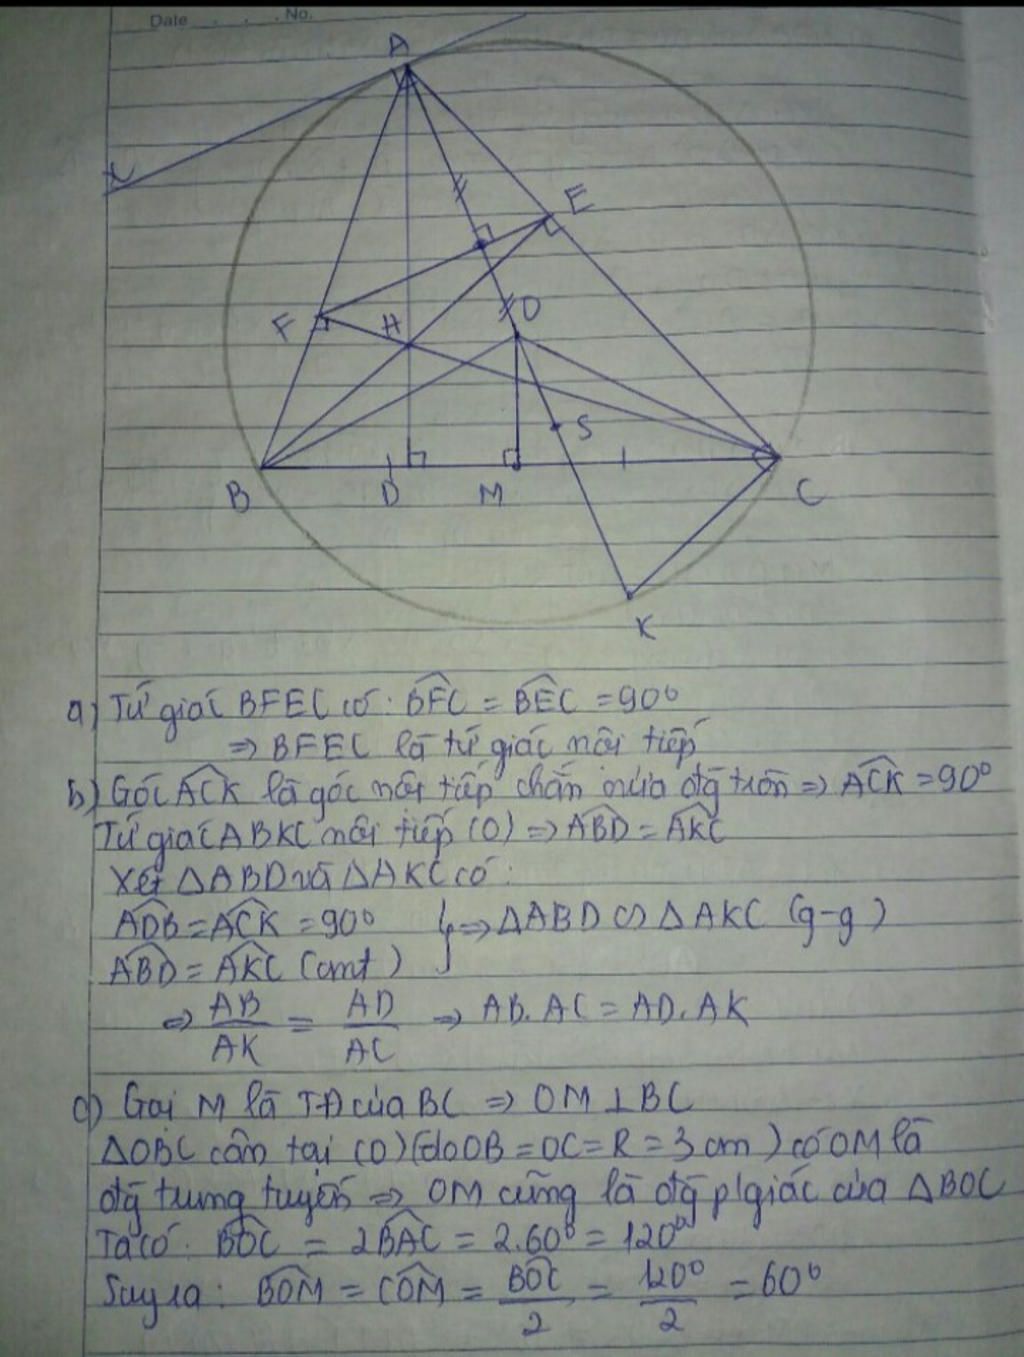 Date . . . No.
A
x
E
F
H
O
S
B
D
M
C
K
a) Tứ giác BFEC có: BFC = BEC = 90°
⇒ BFEC là tứ giác nội tiếp
b) Góc ACK là góc nội tiếp chắn nửa đg tròn ⇒ ACK = 90°
Tứ giác ABKC nội tiếp (O) ⇒ ABD = AKC
Xét ΔABD và ΔAKC có:
ADB = ACK = 90° } ⇒ ΔABD ∽ ΔAKC (g-g)
ABD = AKC (cmt)
⇒ AB/AK = AD/AC ⇒ AB.AC = AD.AK
c) Gọi M là TĐ của BC ⇒ OM ⊥ BC
ΔOBC cân tại (O) (do OB = OC = R = 3 cm) có OM là
đg trung tuyến ⇒ OM cũng là đg p/giác của ΔBOC
Ta có: BOC = 2BAC = 2.60° = 120°
Suy ra: BOM = COM = BOC/2 = 120°/2 = 60°